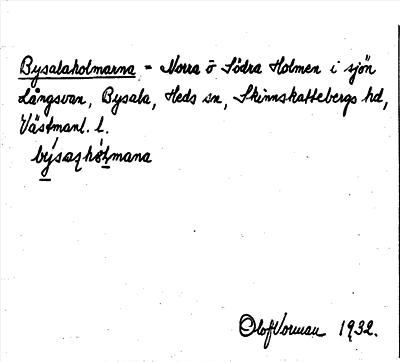 Bysalaholmarna = Norra o Södra Holmen i sjön
Långsvan, Bysala, Heds sn, Skinnskattebergs hd,
Västmanl. l.
Olof Vorman 1932.